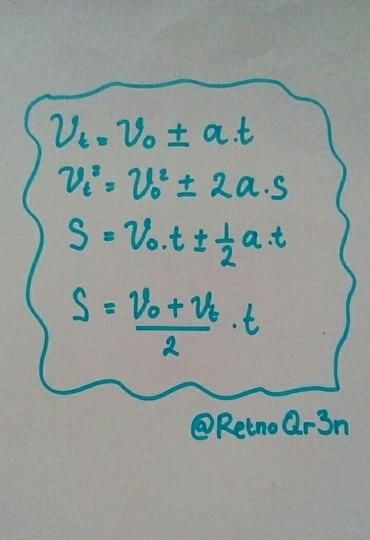 Vt = Vo ± a.t
Vt² = Vo² ± 2a.s
S = Vo.t ± 1/2 a.t
S = Vo + Vt / 2 . t
@RetnoQr3n